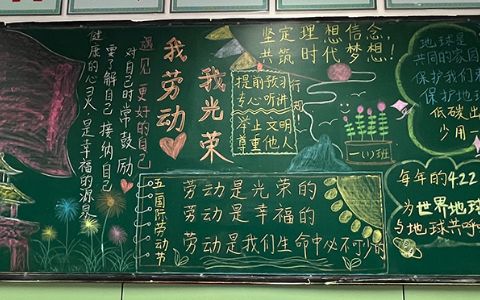 坚定理想信念,
共筑时代梦想!
我劳动
我光荣
遇见更好的自己
对自己时常鼓励
要了解自己 接纳自己
健康的心灵是幸福的源泉
提前预习
专心听讲
举止文明
尊重他人
行知
一(1)班
五一国际劳动节
劳动是光荣的
劳动是幸福的
劳动是我们生命中必不可少的
地球是
共同的家园
保护我们
保护地球
低碳出
少用一
每年的4.22
为世界地球
与地球共呼